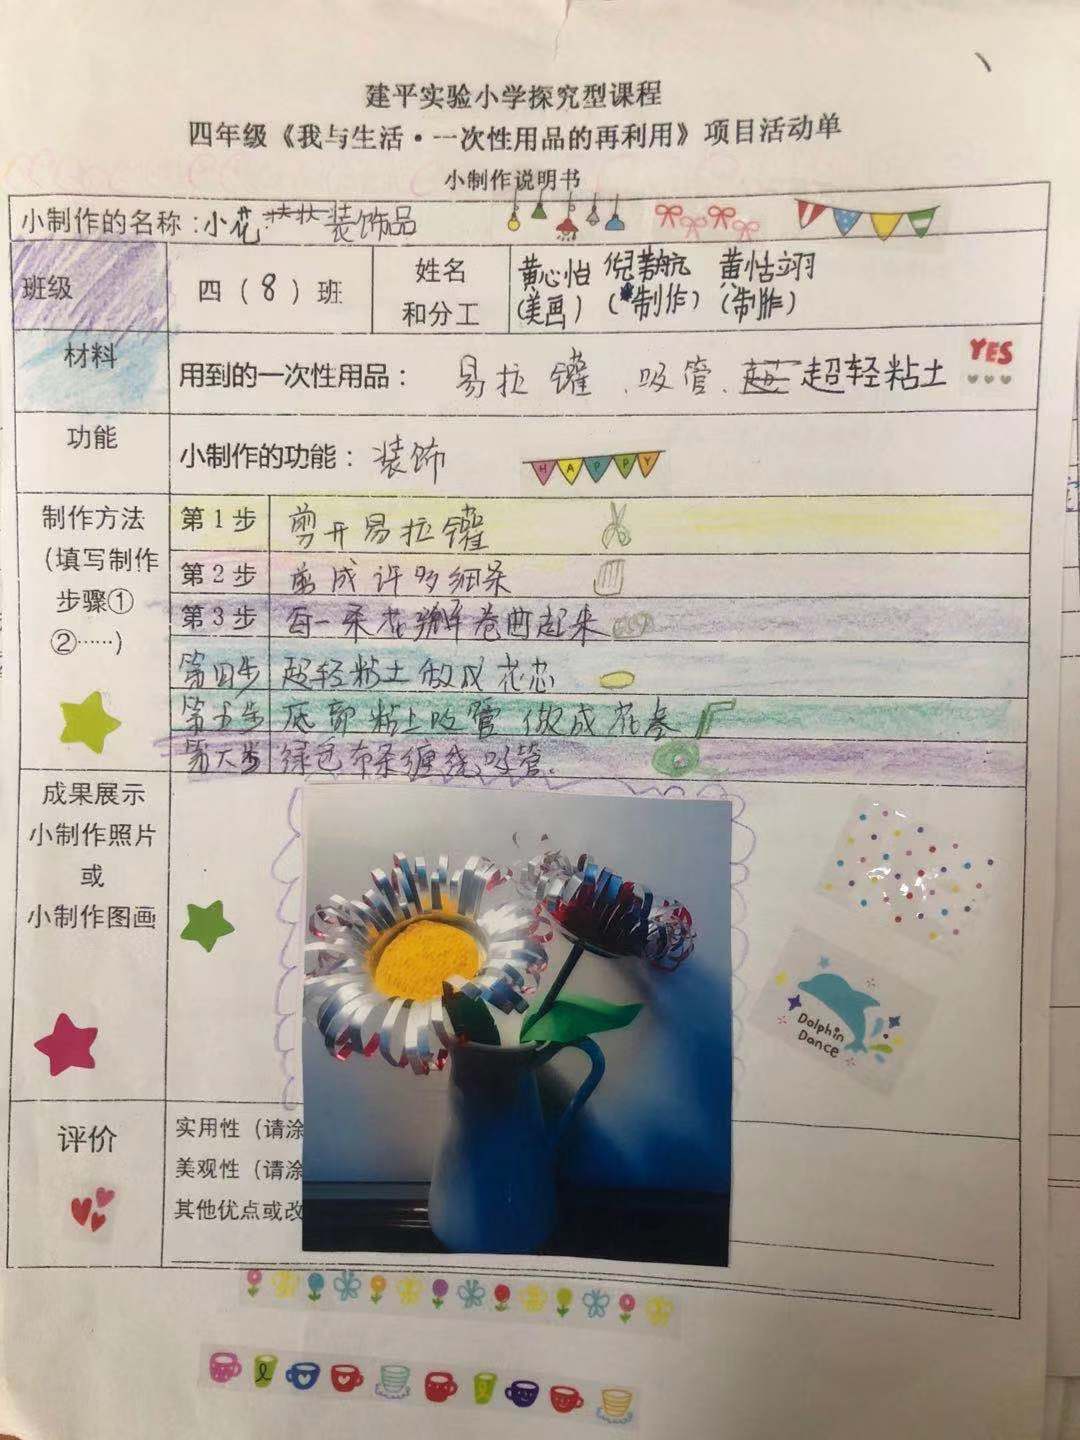 建平实验小学探究型课程
四年级《我与生活·一次性用品的再利用》项目活动单
小制作说明书
小制作的名称：小花 装饰品
班级
四（8）班
姓名
和分工
黄心怡 倪 航 黄怙翊
(美画) (制作) (制作)
材料
用到的一次性用品： 易拉罐、吸管、超轻粘土
YES
功能
小制作的功能：装饰
HAPPY
制作方法
（填写制作
步骤①
②……）
第1步 剪开易拉罐
第2步 剪成许多细条
第3步 每一朵花瓣卷曲起来
第四步 超轻粘土做成花芯
第五步 底部粘上吸管做成花
第六步 绿色布条缠绕吸管.
成果展示
小制作照片
或
小制作图画
Dolphin
Dance
评价
实用性（请涂
美观性（请涂
其他优点或改